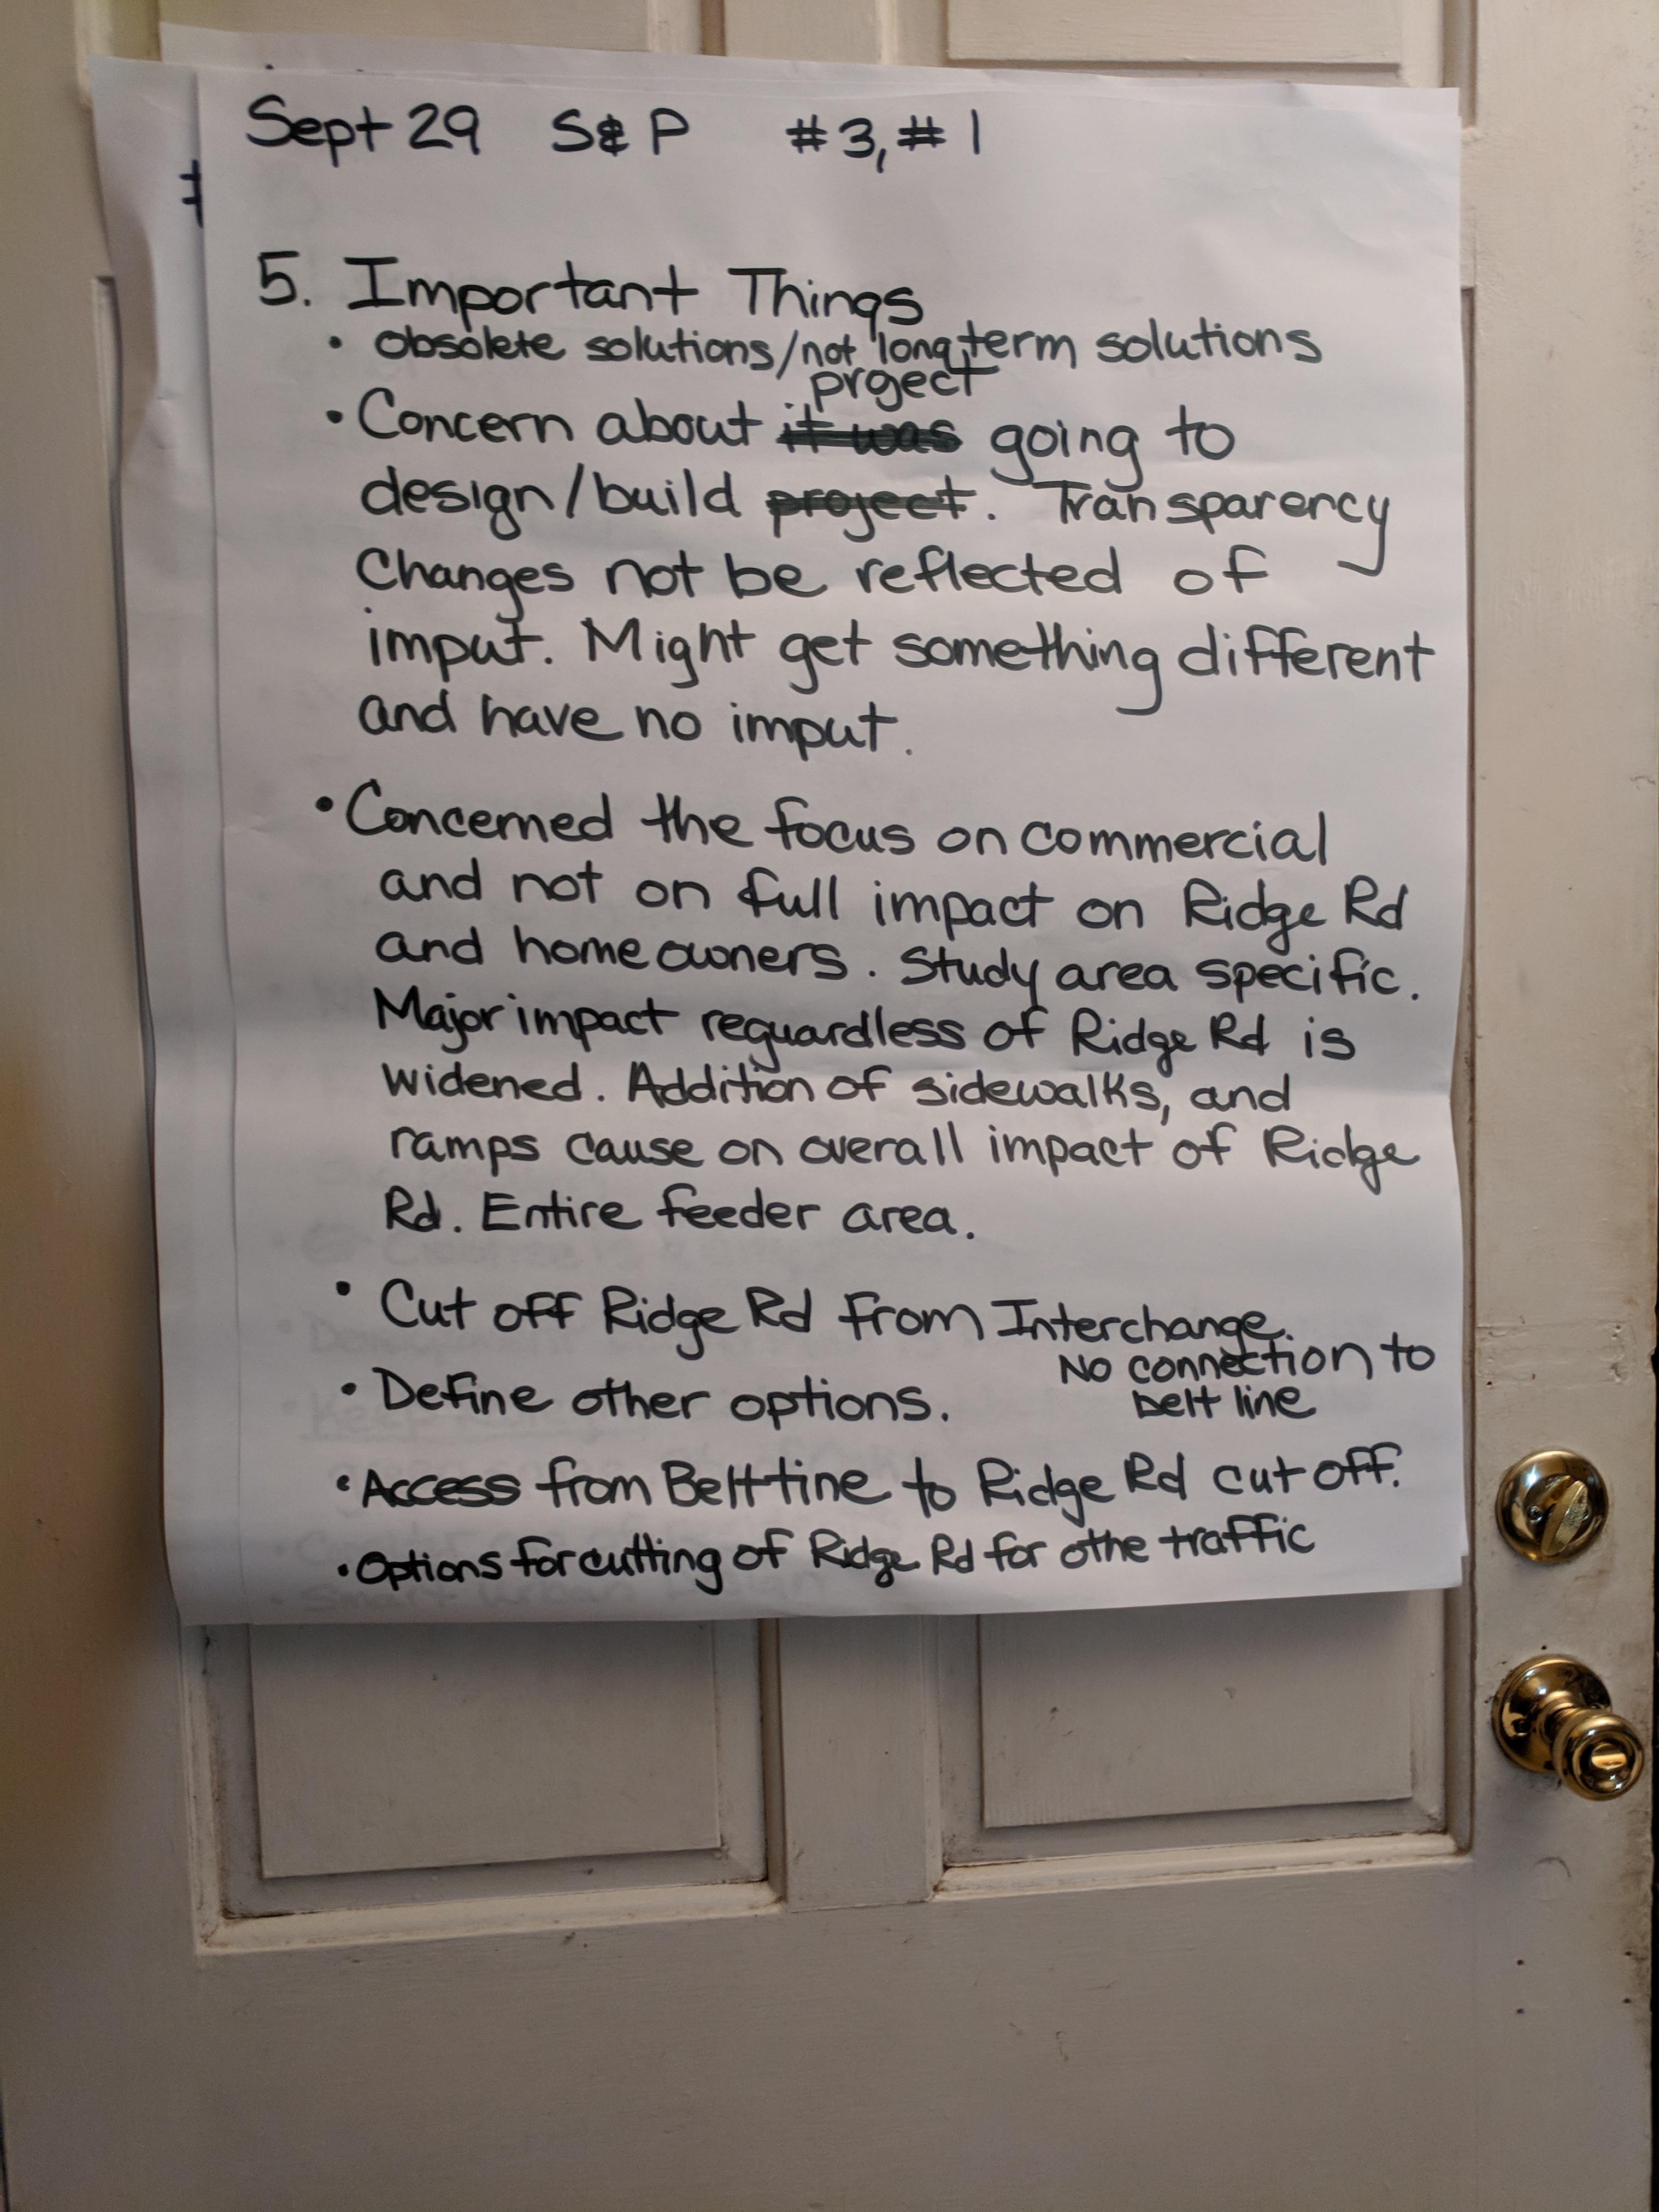 Sept 29 S & P #3, #1
#
5. Important Things
• Obsolete solutions/not long term solutions
project
• Concern about it was going to
design/build project. Transparency
Changes not be reflected of
imput. Might get something different
and have no imput.
• Concerned the focus on commercial
and not on full impact on Ridge Rd
and homeowners. Study area specific.
Major impact reguardless of Ridge Rd is
widened. Addition of sidewalks, and
ramps cause on overall impact of Ridge
Rd. Entire feeder area.
• Cut off Ridge Rd from Interchange.
No connection to
belt line
• Define other options.
• Access from Beltline to Ridge Rd cut off.
• Options for cutting of Ridge Rd for othe traffic